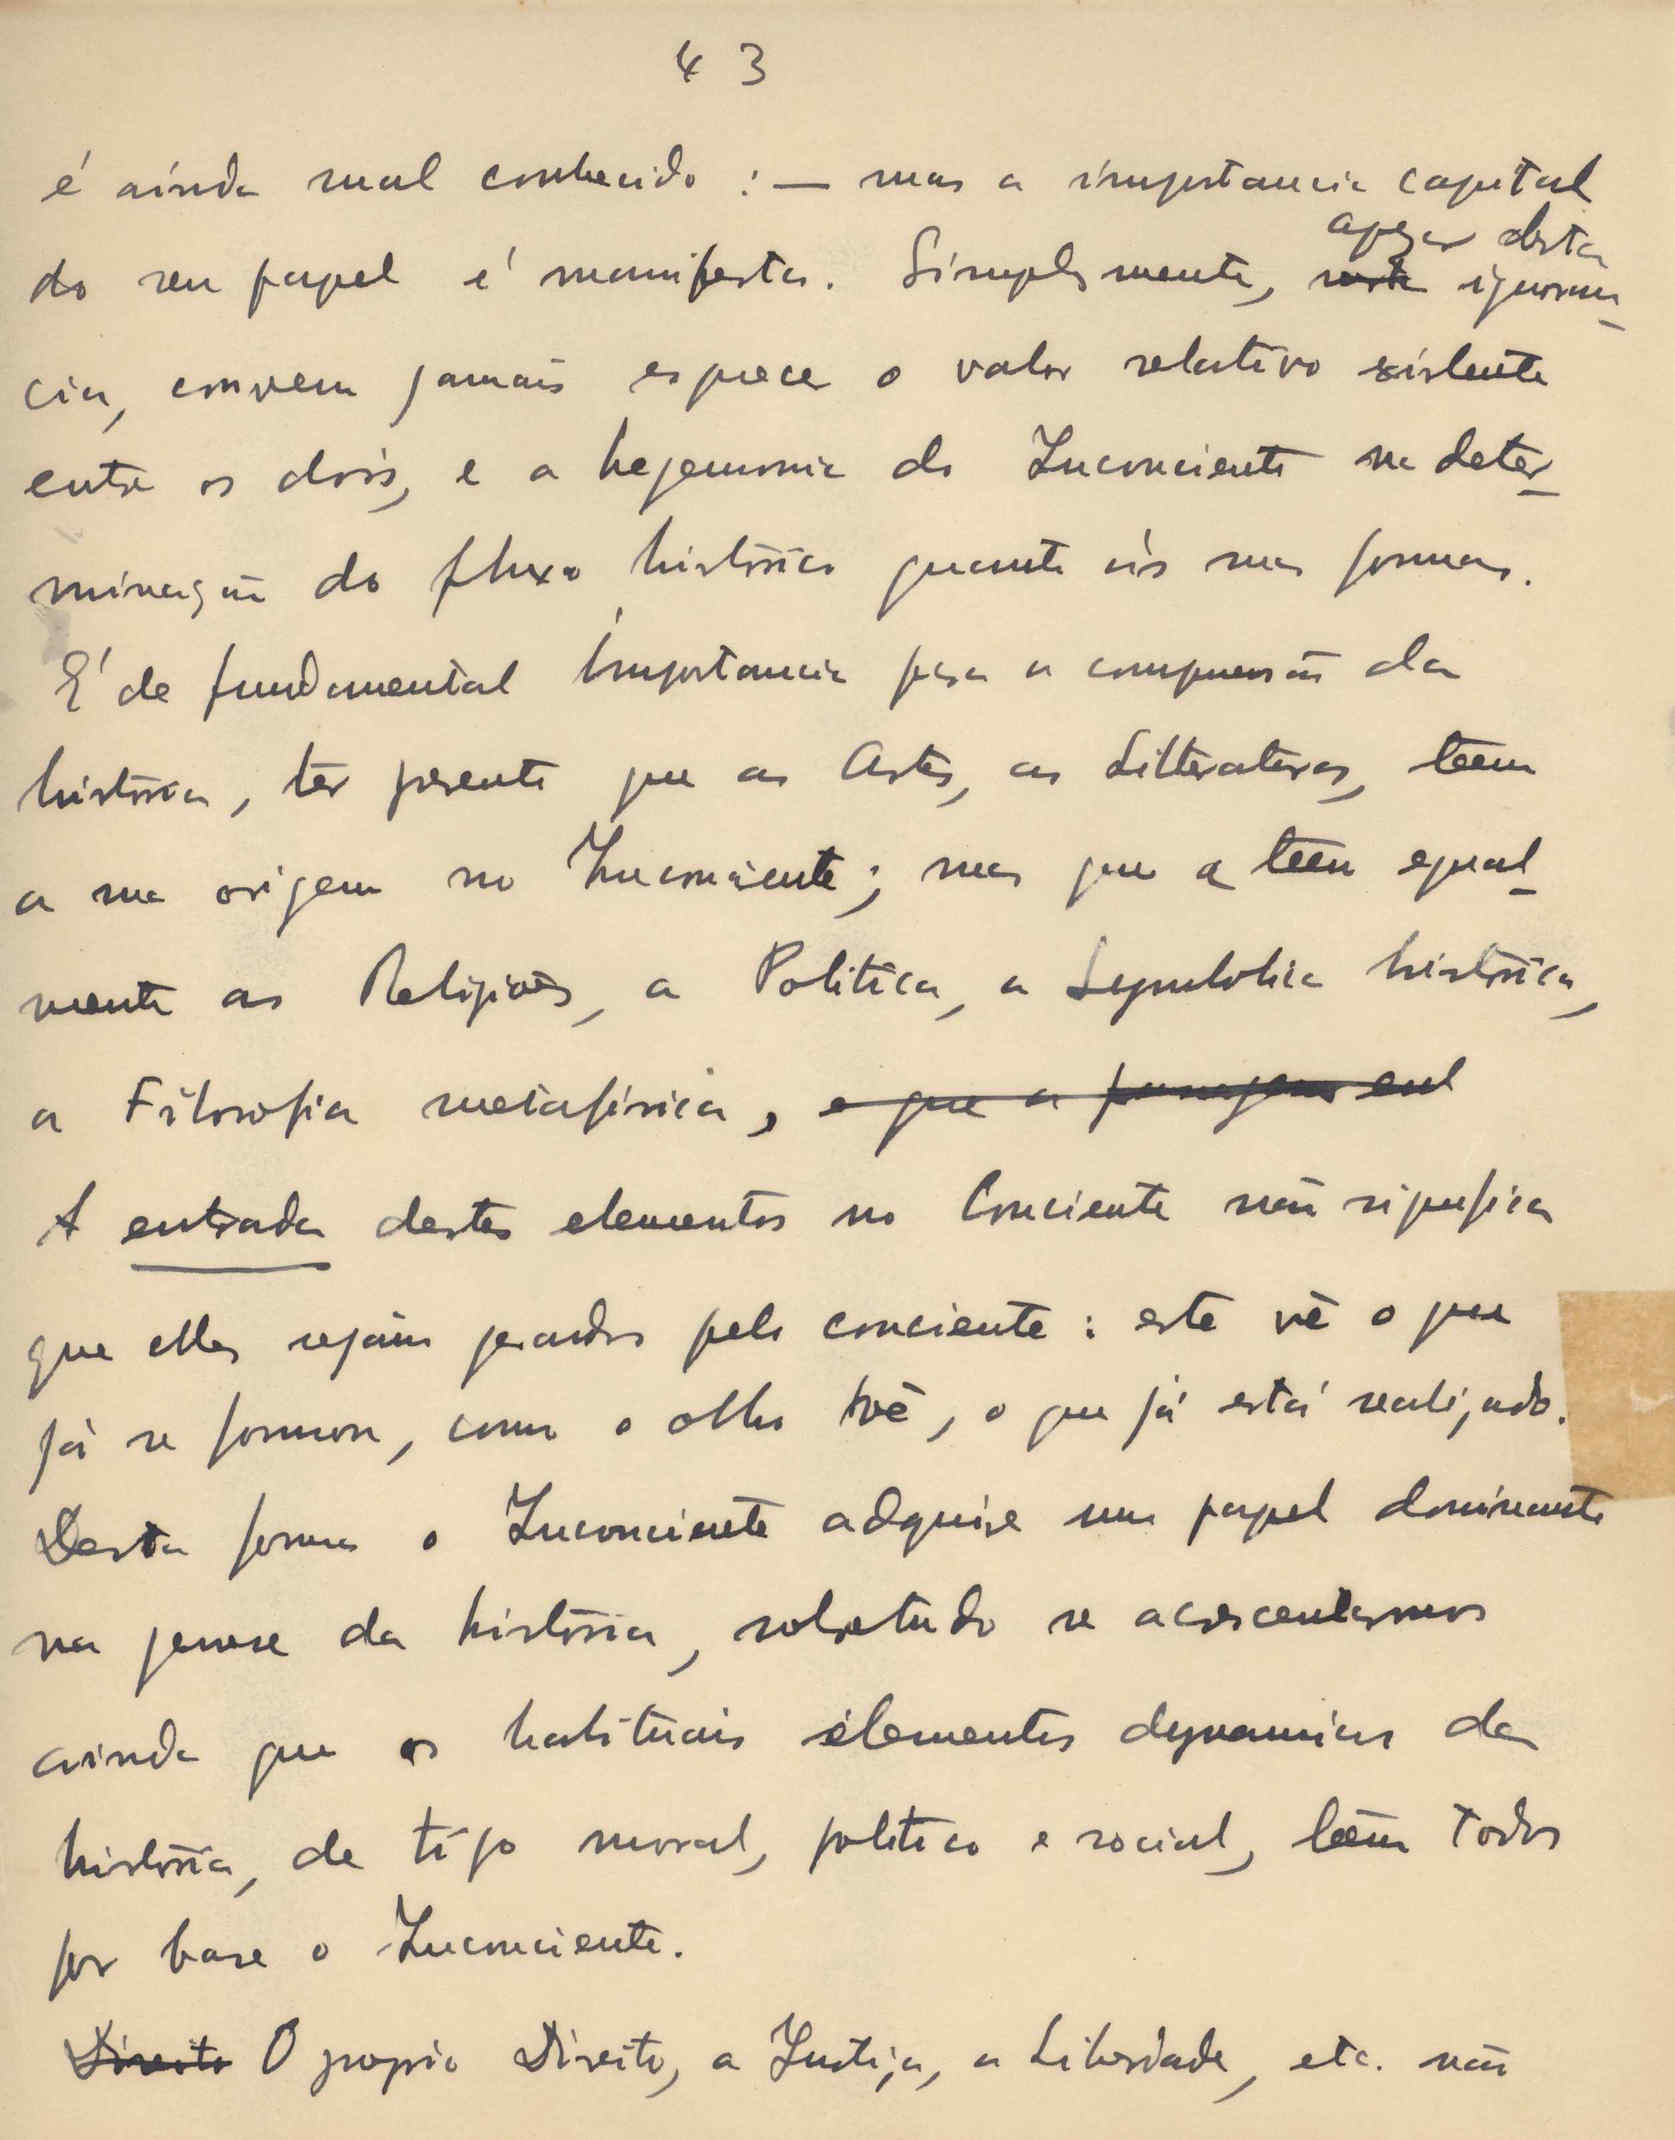 43
é ainda mal conhecido : — mas a importancia capital
apezar desta
do seu papel é manifesta. Simplesmente, ignoran-
cia, convem jamais esquecer o valor relativo existente
entre os dois, e a hegemonia do Inconciente na deter-
minação do fluxo historico quanto ás suas formas.
É de fundamental importancia para a compreensão da
historia, ter presente que as Artes, as Litteraturas, teem
a sua origem no Inconciente; mas que a teem egual-
mente as Religiões, a Politica, a Symbolica historica,
a Filosofia metafisica, e que a passagem
A entrada destes elementos no Conciente não significa
que elles sejam gerados pelo conciente : este vê o que
já se formou, como o olho vê, o que já está realizado.
Desta forma o Inconciente adquire um papel dominante
na genese da historia, sobretudo se acrescentarmos
ainda que os habituais elementos dynamicos da
historia, de tipo moral, politico e social, teem todos
por base o Inconciente.
Direito O proprio Direito, a Justiça, a Liberdade, etc. não